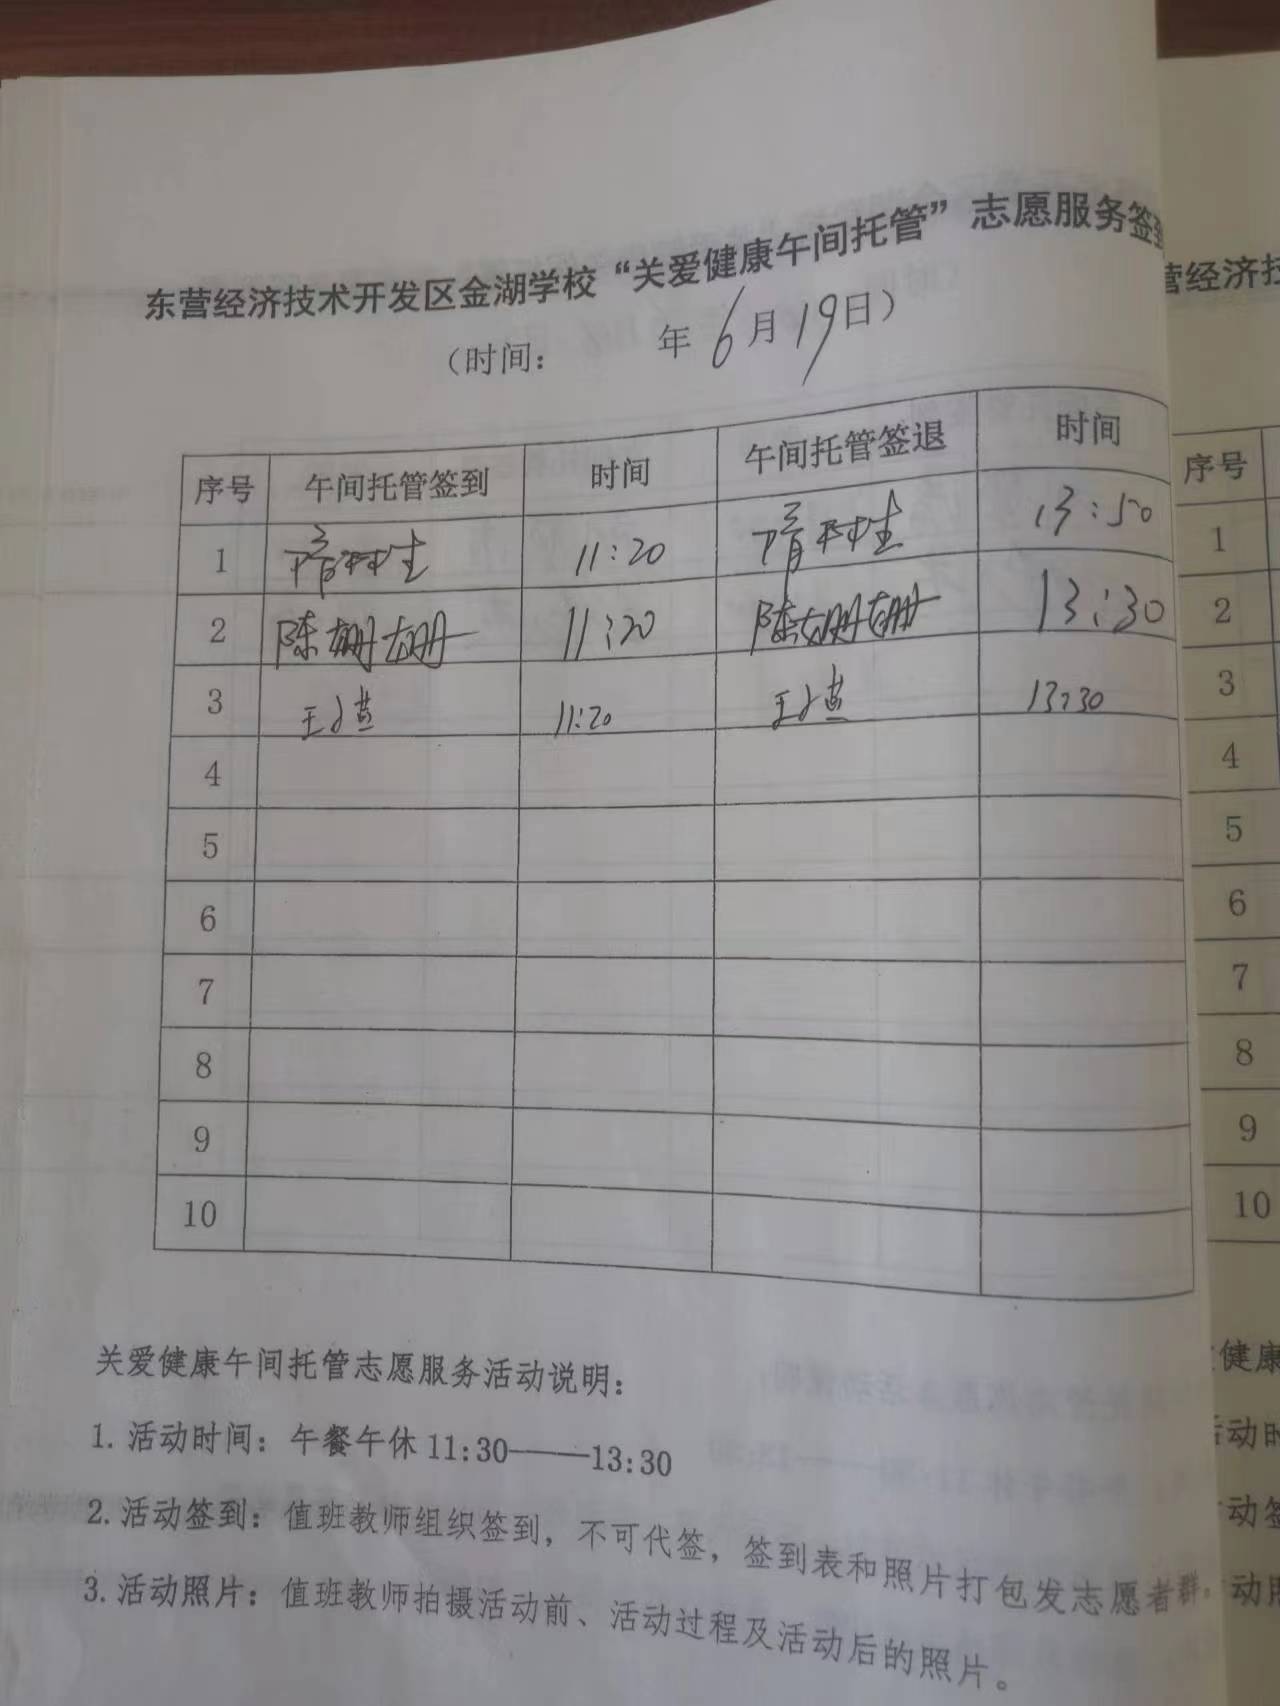 东营经济技术开发区金湖学校“关爱健康午间托管”志愿服务签到
(时间: 年6月19日)
序号 午间托管签到 时间 午间托管签退 时间
1 11:20 13:50
2 陈姗姗 11:20 陈姗姗 13:30
3 11:20 13:30
4
5
6
7
8
9
10
关爱健康午间托管志愿服务活动说明:
1. 活动时间: 午餐午休 11:30——13:30
2. 活动签到: 值班教师组织签到, 不可代签, 签到表和照片打包发志愿者群。
3. 活动照片: 值班教师拍摄活动前、活动过程及活动后的照片。
营经济技
序号
1
2
3
4
5
6
7
8
9
10
健康
动时
动签
动照